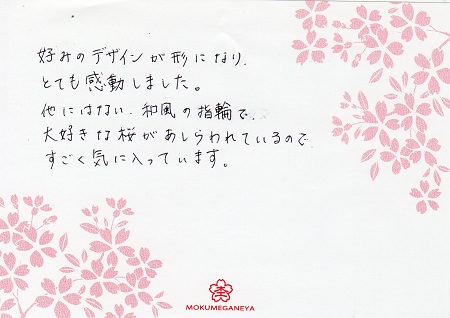 好みのデザインが形になり、
とても感動しました。
他にはない、和風の指輪で、
大好きな桜があしらわれているので
すごく気に入っています。
MOKUMEGANEYA